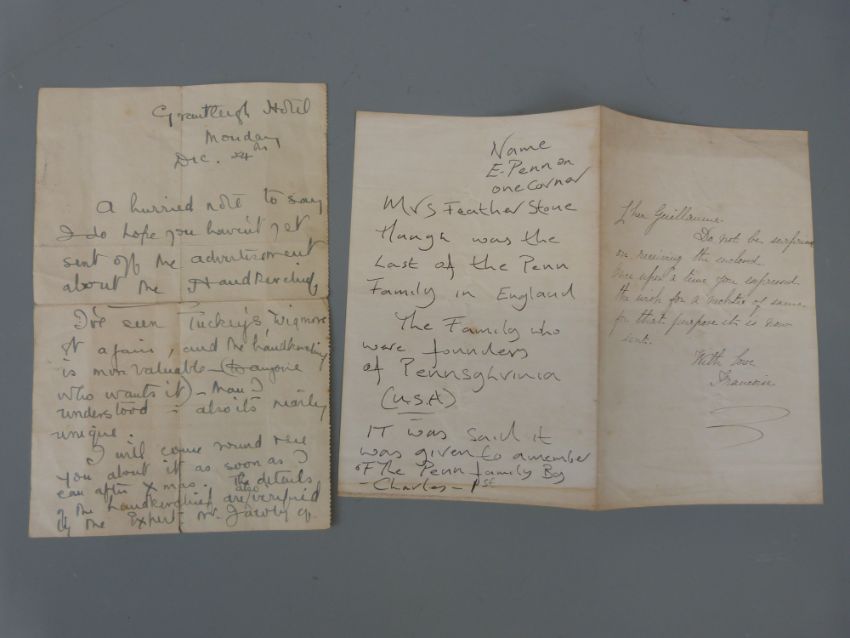 Grantleigh Hotel
Monday
Dec. 24th
A hurried note to say
I do hope you haven't yet
sent off the advertisement
about the Handkerchief
I've seen Tuckey's, Wigmore
St again, and the handkerchief
is more valuable (to anyone
who wants it) - than I
understood - also its nearly
unique.
I will come round & see
you about it as soon as I
can after Xmas. The details
of the handkerchief are also verified
by the Expert - Mr.
Name
E. Penn on
one corner
Mrs FeatherStone
Haugh was the
Last of the Penn
Family in England
The Family who
were founders
of Pennsghvinia
(U.S.A)
IT was said it
was given to a member
OF the Penn family By
- Charles - 1st
Cher Guillaume.
Do not be surprised
on receiving the enclosed
Once upon a time you expressed
the wish for a of same
for that purpose it is now
sent.
With Love
Francoise